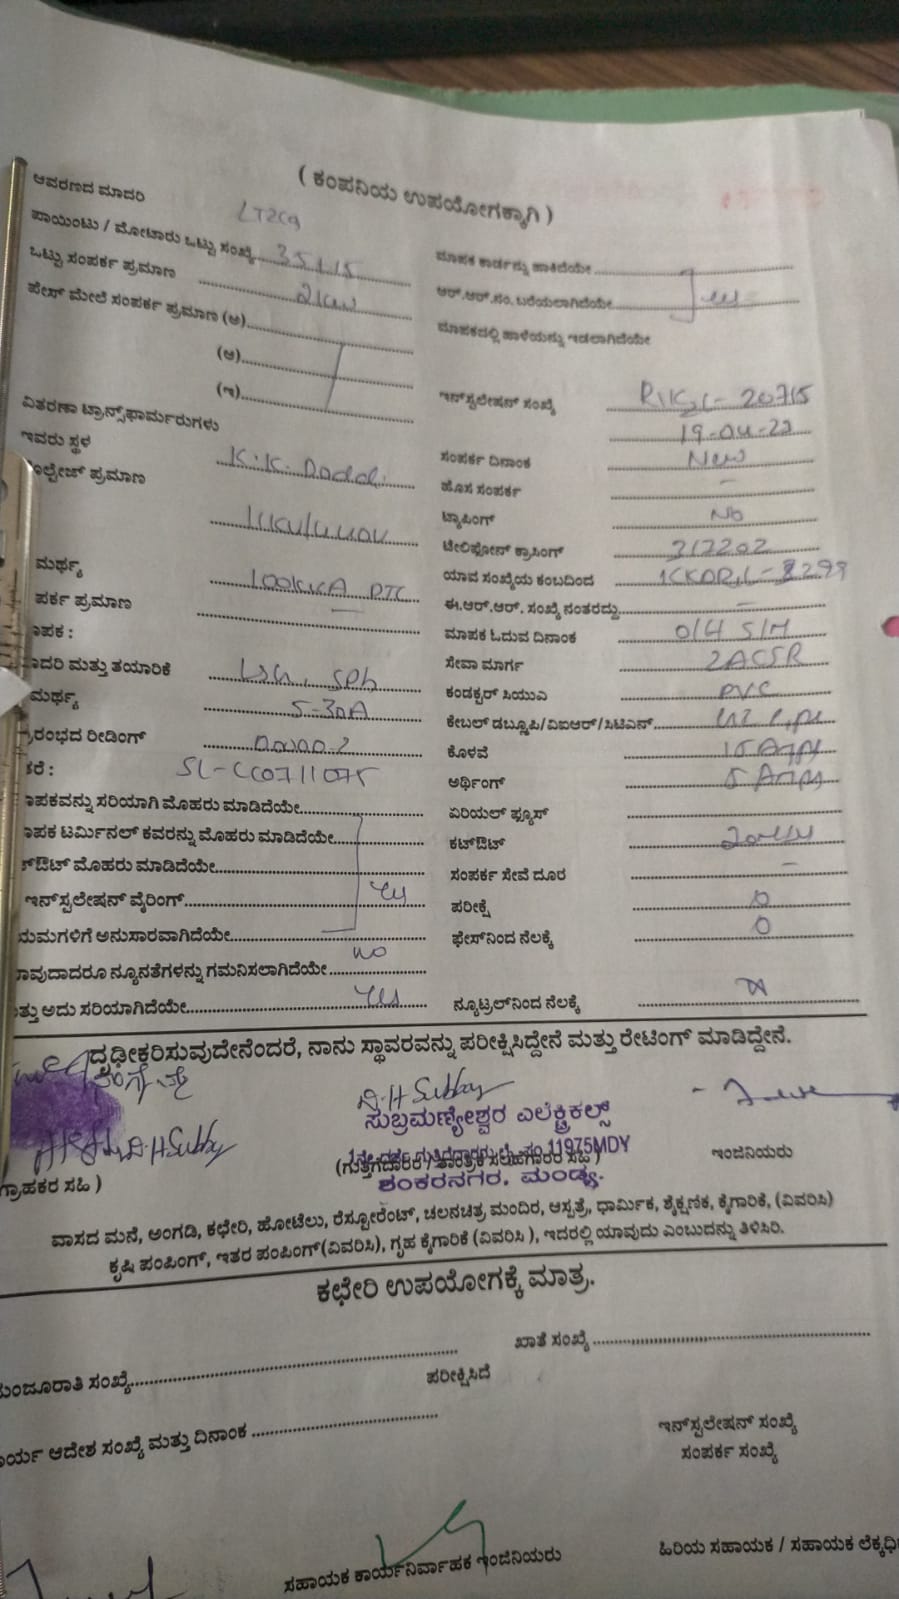 ( ಕಂಪನಿಯ ಉಪಯೋಗಕ್ಕಾಗಿ )
ಆವರಣದ ಮಾದರಿ
ಪಾಯಿಂಟು / ಮೋಟಾರು ಒಟ್ಟು ಸಂಖ್ಯೆ
ಒಟ್ಟು ಸಂಪರ್ಕ ಪ್ರಮಾಣ 2kw
ಪೇಸ್ ಮೇಲೆ ಸಂಪರ್ಕ ಪ್ರಮಾಣ (ಅ)
(ಆ)
(ಇ)
ವಿತರಣಾ ಟ್ರಾನ್ಸ್‌ಫಾರ್ಮರುಗಳು
ಇವರು ಸ್ಥಳ K.K. Doddi
ಪ್ರಮಾಣ
ಮರ್ಥ್ಯ
ಪರ್ಕ ಪ್ರಮಾಣ
ಾಪಕ :
ಾದರಿ ಮತ್ತು ತಯಾರಿಕೆ
ಮರ್ಥ್ಯ 5-30A
ರಂಭದ ರೀಡಿಂಗ್ 00000.2
ಕರೆ : SL-CC0711075
ಾಪಕವನ್ನು ಸರಿಯಾಗಿ ಮೊಹರು ಮಾಡಿದೆಯೇ
ಾಪಕ ಟರ್ಮಿನಲ್ ಕವರನ್ನು ಮೊಹರು ಮಾಡಿದೆಯೇ
ಔಟ್ ಮೊಹರು ಮಾಡಿದೆಯೇ
ಇನ್‌ಸ್ಪಲೇಷನ್ ವೈರಿಂಗ್
ಯಮಗಳಿಗೆ ಅನುಸಾರವಾಗಿದೆಯೇ
ಾವುದಾದರೂ ನ್ಯೂನತೆಗಳನ್ನು ಗಮನಿಸಲಾಗಿದೆಯೇ No
ತ್ತು ಅದು ಸರಿಯಾಗಿದೆಯೇ Yes
ಮಾಪಕ ಕಾರ್ಡನ್ನು ಹಾಕಿದೆಯೇ
ಆರ್.ಆರ್.ನಂ. ಬರೆಯಲಾಗಿದೆಯೇ
ಮಾಪಕದಲ್ಲಿ ಹಾಳೆಯನ್ನು ಇಡಲಾಗಿದೆಯೇ
ಇನ್‌ಸ್ಪಲೇಷನ್ ಸಂಖ್ಯೆ 20715
19-04-22
ಸಂಪರ್ಕ ದಿನಾಂಕ New
ಹೊಸ ಸಂಪರ್ಕ -
ಟ್ಯಾಪಿಂಗ್ No
ಟೇಲಿಫೋನ್ ಕ್ರಾಸಿಂಗ್ 317202
ಯಾವ ಸಂಖ್ಯೆಯ ಕಂಬದಿಂದ
ಈ.ಆರ್.ಆರ್. ಸಂಖ್ಯೆ ನಂತರದ್ದು -
ಮಾಪಕ ಓದುವ ದಿನಾಂಕ O/H S/M
ಸೇವಾ ಮಾರ್ಗ 2ACSR
ಕಂಡಕ್ಟರ್ ಸಿಯುಎ PVC
ಕೇಬಲ್ ಡಬ್ಲೂಪಿ/ವಿಐಆರ್/ಸಿಟಿಎಸ್
ಕೊಳವೆ 15 Amps
ಅರ್ಥಿಂಗ್ 5 Amps
ಏರಿಯಲ್ ಫ್ಯೂಸ್
ಕಟ್‌ಔಟ್
ಸಂಪರ್ಕ ಸೇವೆ ದೂರ -
ಪರೀಕ್ಷೆ 0
ಫೇಸ್‌ನಿಂದ ನೆಲಕ್ಕೆ 0
ನ್ಯೂಟ್ರಲ್‌ನಿಂದ ನೆಲಕ್ಕೆ
ದೃಢೀಕರಿಸುವುದೇನೆಂದರೆ, ನಾನು ಸ್ಥಾವರವನ್ನು ಪರೀಕ್ಷಿಸಿದ್ದೇನೆ ಮತ್ತು ರೇಟಿಂಗ್ ಮಾಡಿದ್ದೇನೆ.
D.H Subbay
ಸುಬ್ರಮಣ್ಯೇಶ್ವರ ಎಲೆಕ್ಟ್ರಿಕಲ್ಸ್
11975MDY
(ಗುತ್ತಿಗೆದಾರರ / ತಾಂತ್ರಿಕ ಸಲಹೆಗಾರರ ಸಹಿ )
ಶಂಕರನಗರ, ಮಂಡ್ಯ.
ಇಂಜಿನಿಯರು
ಗ್ರಾಹಕರ ಸಹಿ )
ವಾಸದ ಮನೆ, ಅಂಗಡಿ, ಕಛೇರಿ, ಹೋಟೆಲು, ರೆಸ್ಟೋರೆಂಟ್, ಚಲನಚಿತ್ರ ಮಂದಿರ, ಆಸ್ಪತ್ರೆ, ಧಾರ್ಮಿಕ, ಶೈಕ್ಷಣಿಕ, ಕೈಗಾರಿಕೆ, (ವಿವರಿಸಿ)
ಕೃಷಿ ಪಂಪಿಂಗ್, ಇತರ ಪಂಪಿಂಗ್(ವಿವರಿಸಿ), ಗೃಹ ಕೈಗಾರಿಕೆ (ವಿವರಿಸಿ ), ಇದರಲ್ಲಿ ಯಾವುದು ಎಂಬುದನ್ನು ತಿಳಿಸಿರಿ.
ಕಛೇರಿ ಉಪಯೋಗಕ್ಕೆ ಮಾತ್ರ.
ಖಾತೆ ಸಂಖ್ಯೆ
ಮಂಜೂರಾತಿ ಸಂಖ್ಯೆ
ಪರೀಕ್ಷಿಸಿದೆ
ಾರ್ಯ ಆದೇಶ ಸಂಖ್ಯೆ ಮತ್ತು ದಿನಾಂಕ
ಇನ್‌ಸ್ಪಲೇಷನ್ ಸಂಖ್ಯೆ
ಸಂಪರ್ಕ ಸಂಖ್ಯೆ
ಸಹಾಯಕ ಕಾರ್ಯನಿರ್ವಾಹಕ ಇಂಜಿನಿಯರು
ಹಿರಿಯ ಸಹಾಯಕ / ಸಹಾಯಕ ಲೆಕ್ಕಧಿ